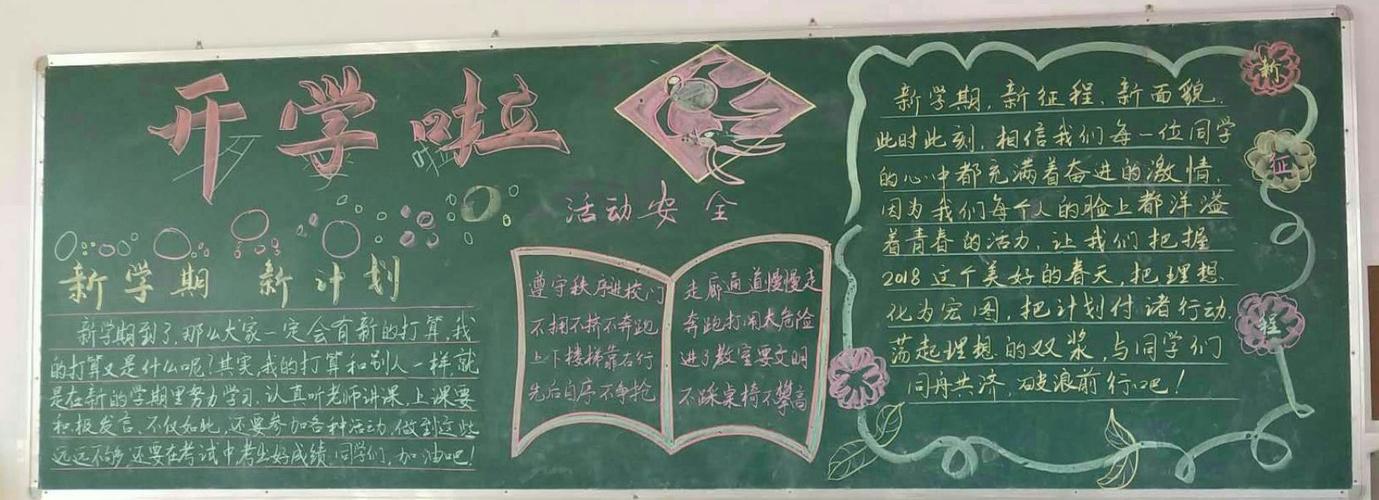 开学啦
新学期 新计划
新学期到了,那么大家一定会有新的打算,我
的打算又是什么呢?其实,我的打算和别人一样,就
是在新的学期里努力学习,认真听老师讲课,上课要
积极发言,不仅如此,还要参加各种活动,做到这些
远远不够,还要在考试中考出好成绩,同学们,加油吧!
活动安全
遵守秩序进校门
不拥不挤不奔跑
上下楼梯靠右行
先后自序不争抢
走廊通道慢慢走
奔跑打闹太危险
进了教室要文明
不踩桌椅不攀高
新学期,新征程、新面貌.
此时此刻,相信我们每一位同学
的心中都充满着奋进的激情,
因为我们每个人的脸上都洋溢
着青春的活力,让我们把握
2018这个美好的春天,把理想
化为宏图,把计划付诸行动,
荡起理想的双浆,与同学们
同舟共济,破浪前行吧!
新
征
程